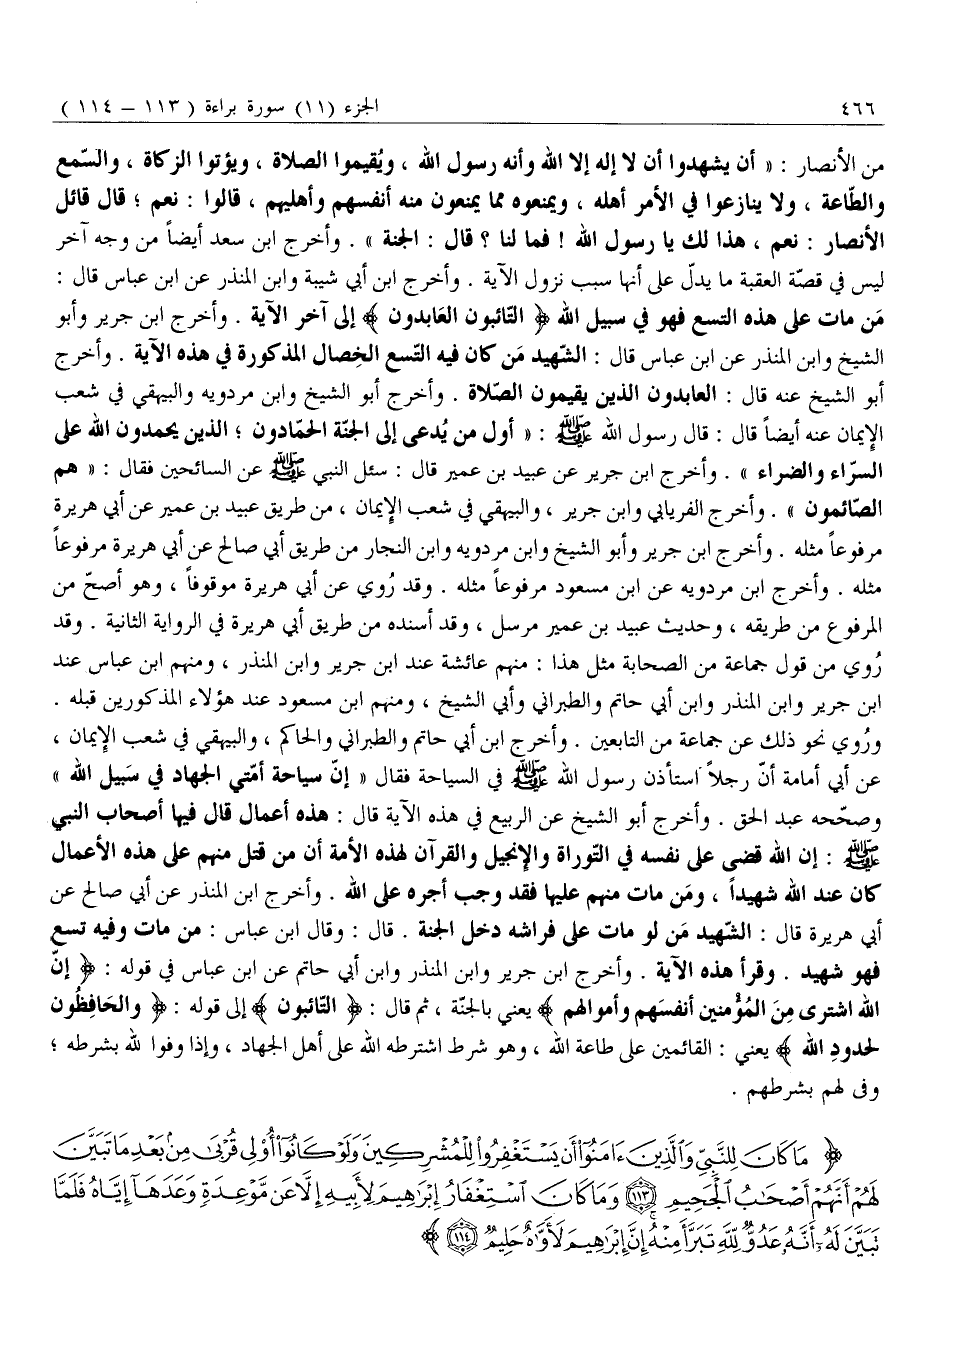 ٤٦٦ الجزء (١١) سورة براءة ( ١١٣ – ١١٤ )
من الأنصار : « أن يشهدوا أن لا إله إلا الله وأنه رسول الله ، ويُقيموا الصلاة ، ويؤتوا الزكاة ، والسّمع
والطّاعة ، ولا ينازعوا في الأمر أهله ، ويمنعوه مما يمنعون منه أنفسهم وأهليهم ، قالوا : نعم ؛ قال قائل
الأنصار : نعم ، هذا لك يا رسول الله ! فما لنا ؟ قال : الجنة » . وأخرج ابن سعد أيضاً من وجه آخر
ليس في قصّة العقبة ما يدلّ على أنها سبب نزول الآية . وأخرج ابن أبي شيبة وابن المنذر عن ابن عباس قال :
مَن مات على هذه التسع فهو في سبيل الله ﴿ التّائبون العَابدون ﴾ إلى آخر الآية . وأخرج ابن جرير وأبو
الشيخ وابن المنذر عن ابن عباس قال : الشّهيد مَن كان فيه التّسع الخِصال المذكورة في هذه الآية . وأخرج
أبو الشيخ عنه قال : العابدون الذين يقيمون الصّلاة . وأخرج أبو الشيخ وابن مردويه والبيهقي في شعب
الإيمان عنه أيضاً قال : قال رسول الله ﷺ : « أول من يُدعى إلى الجنّة الحمّادون ؛ الذين يحمدون الله على
السرّاء والضراء » . وأخرج ابن جرير عن عبيد بن عمير قال : سئل النبي ﷺ عن السائحين فقال : « هم
الصّائمون » . وأخرج الفريابي وابن جرير ، والبيهقي في شعب الإيمان ، من طريق عبيد بن عمير عن أبي هريرة
مرفوعاً مثله . وأخرج ابن جرير وأبو الشيخ وابن مردويه وابن النجار من طريق أبي صالح عن أبي هريرة مرفوعاً
مثله . وأخرج ابن مردويه عن ابن مسعود مرفوعاً مثله . وقد رُوي عن أبي هريرة موقوفاً ، وهو أصحّ من
المرفوع من طريقه ، وحديث عبيد بن عمير مرسل ، وقد أسنده من طريق أبي هريرة في الرواية الثانية . وقد
رُوي من قول جماعة من الصحابة مثل هذا : منهم عائشة عند ابن جرير وابن المنذر ، ومنهم ابن عباس عند
ابن جرير وابن المنذر وابن أبي حاتم والطبراني وأبي الشيخ ، ومنهم ابن مسعود عند هؤلاء المذكورين قبله .
ورُوي نحو ذلك عن جماعة من التابعين . وأخرج ابن أبي حاتم والطبراني والحاكم ، والبيهقي في شعب الإيمان ،
عن أبي أمامة أنّ رجلاً استأذن رسول الله ﷺ في السياحة فقال « إنّ سياحة أمّتي الجهاد في سَبيل الله »
وصحّحه عبد الحق . وأخرج أبو الشيخ عن الربيع في هذه الآية قال : هذه أعمال قال فيها أصحاب النبي
ﷺ : إن الله قضى على نفسه في التّوراة والإنجيل والقرآن لهذه الأمة أن من قتل منهم على هذه الأعمال
كان عند الله شهيداً ، ومَن مات منهم عليها فقد وجب أجره على الله . وأخرج ابن المنذر عن أبي صالح عن
أبي هريرة قال : الشّهيد مَن لو مات على فراشه دخل الجنة . قال : وقال ابن عباس : من مات وفيه تسع
فهو شهيد . وقرأ هذه الآية . وأخرج ابن جرير وابن المنذر وابن أبي حاتم عن ابن عباس في قوله : ﴿ إنّ
الله اشترى مِنَ المُؤْمنين أنفسَهم وأموالهم ﴾ يعني بالجنّة ، ثم قال : ﴿ التّائبون ﴾ إلى قوله : ﴿ والحَافِظُون
لحدودِ الله ﴾ يعني : القائمين على طاعة الله ، وهو شرط اشترطه الله على أهل الجهاد ، وإذا وفوا لله بشرطه ؛
وفى لهم بشرطهم .
﴿ مَا كَانَ لِلنَّبِيِّ وَٱلَّذِينَ ءَامَنُوٓا۟ أَن يَسْتَغْفِرُوا۟ لِلْمُشْرِكِينَ وَلَوْ كَانُوٓا۟ أُو۟لِى قُرْبَىٰ مِنۢ بَعْدِ مَا تَبَيَّنَ
لَهُمْ أَنَّهُمْ أَصْحَٰبُ ٱلْجَحِيمِ ١١٣ وَمَا كَانَ ٱسْتِغْفَارُ إِبْرَٰهِيمَ لِأَبِيهِ إِلَّا عَن مَّوْعِدَةٍ وَعَدَهَآ إِيَّاهُ فَلَمَّا
تَبَيَّنَ لَهُۥٓ أَنَّهُۥ عَدُوٌّ لِّلَّهِ تَبَرَّأَ مِنْهُ إِنَّ إِبْرَٰهِيمَ لَأَوَّٰهٌ حَلِيمٌ ١١٤ ﴾